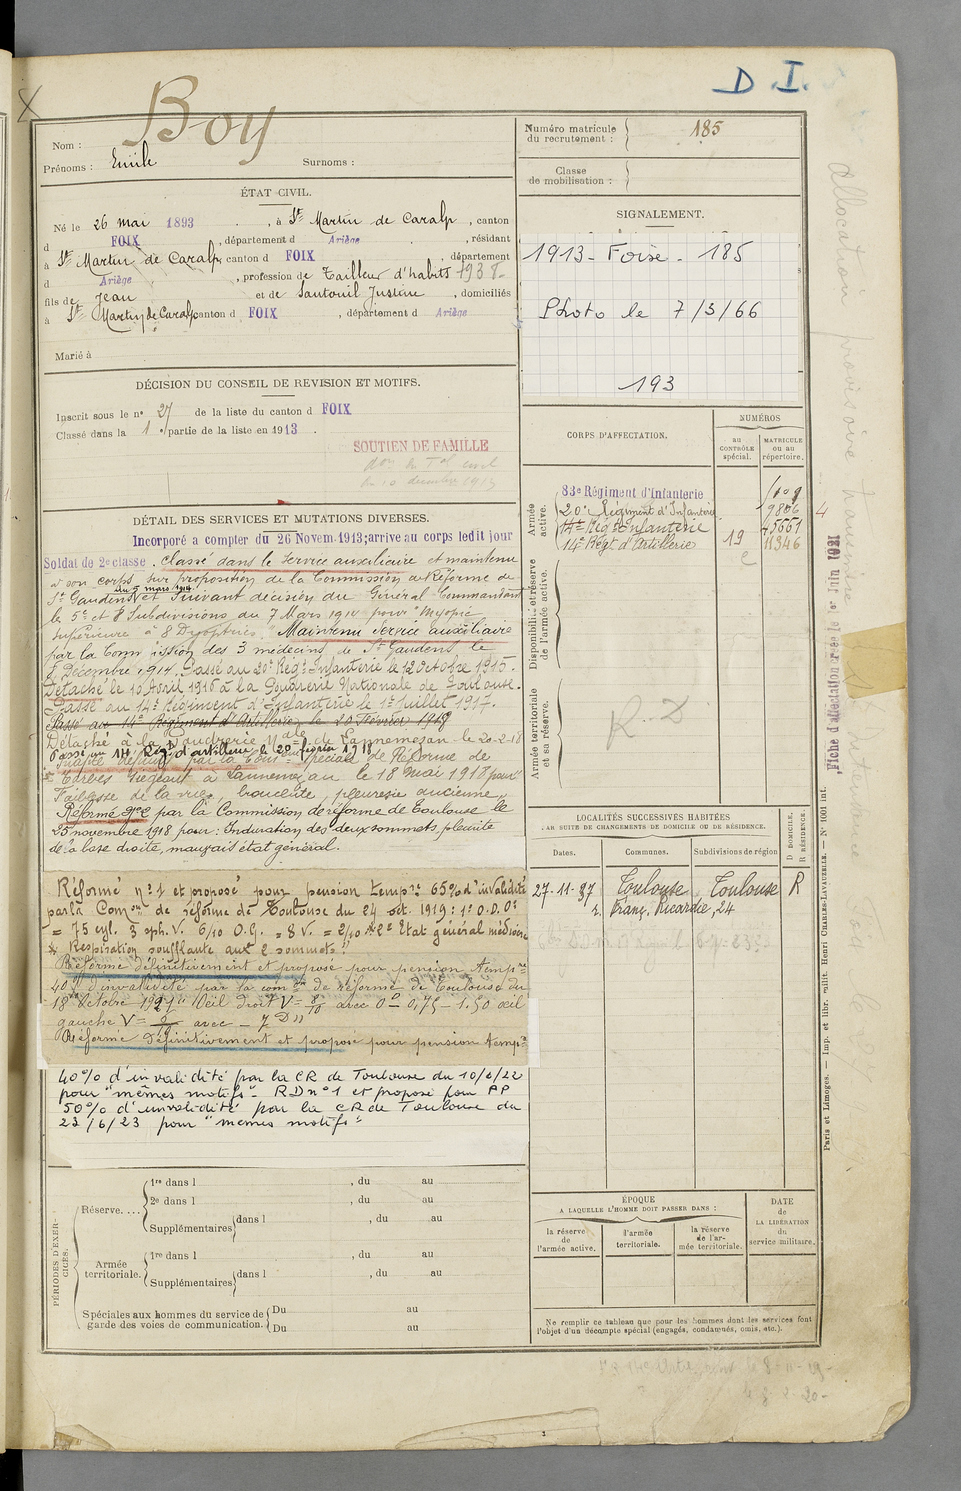 D.I.
Boy
Nom :
Prénoms : Emile Surnoms :
ÉTAT CIVIL.
Né le 26 mai 1893, à St Martin de Caralp, canton
d FOIX, département d Ariège, résidant
à St Martin de Caralp, canton d FOIX, département
d Ariège, profession de Tailleur d'habits 1938
fils de Jean et de Santouil Justine, domiciliés
à St Martin de Caralp canton d FOIX, département d Ariège
Marié à
DÉCISION DU CONSEIL DE REVISION ET MOTIFS.
Inscrit sous le n° 27 de la liste du canton d FOIX
Classé dans la 1 e partie de la liste en 1913.
SOUTIEN DE FAMILLE
décembre 1913
DÉTAIL DES SERVICES ET MUTATIONS DIVERSES.
Incorporé a compter du 26 Novem. 1913; arrivé au corps ledit jour
Soldat de 2e classe. Classé dans le service auxiliaire et maintenu
à son corps sur proposition de la Commission de Réforme de
St Gaudens du 5 mars 1914 et suivant décision du Général Commandant
les 5e et 8e Subdivisions du 7 Mars 1914 pour "Myopie
supérieure à 8 Dyoptries". Maintenu service auxiliaire
par la Commission des 3 médecins de St Gaudens le
Décembre 1914. Passé au 20e Régt Infanterie le 12 Octobre 1915.
Détaché le 10 Avril 1916 à la Poudrerie Nationale de Toulouse.
Passé au 14e Régiment d'Infanterie le 1er Juillet 1917.
Passé au 14e Régiment d'Artillerie le 20 Février 1918
Détaché à la Poudrerie Nale de Lannemezan le 20-2-18
Passé au 14e Rég. d'artillerie le 20 février 1918
par la Comon spéciale de Réforme de
Tarbes siégeant à Lannemezan le 18 Mai 1918 pour
Faiblesse de la vue, bronchite, pleurésie ancienne.
Réformé n°2 par la Commission de réforme de Toulouse le
25 novembre 1918 pour : Induration des deux sommets, pleurite
de la base droite, mauvais état général.
Réformé n°1 et proposé pour pension tempre 65% d'invalidité
par la Comon de réforme de Toulouse du 24 oct. 1919 : 1° O.D.
= 75 cyl. 3 sph. V. 6/10 O.G. = 8 V. = 2/10 2° Etat général médiocre
Respiration soufflante aux 2 sommets"
Réformé définitivement et proposé pour pension tempre
40% d'invalidité par la comon de réforme de Toulouse du
18 Octobre 1921 "Oeil droit V = 8/10 avec 0,75 - 1.50 œil
gauche V = avec - 7 D"
Réformé définitivement et proposé pour pension tempre
40% d'invalidité par la CR de Toulouse du 10/6/22
pour "mêmes motifs". RD n°1 et proposé pour PP
50% d'invalidité par la CR de Toulouse du
23/6/23 pour "mêmes motifs"
PÉRIODES D'EXERCICES.
Réserve....
1re dans l , du au
2e dans l , du au
Supplémentaires dans l , du au
Armée territoriale.
1re dans l , du au
Supplémentaires dans l , du au
Spéciales aux hommes du service de garde des voies de communication.
Du au
Du au
Numéro matricule du recrutement : 185
Classe de mobilisation :
SIGNALEMENT.
1913 - Foix - 185
Photo le 7/3/66
193
CORPS D'AFFECTATION.
NUMÉROS
au CONTRÔLE spécial.
MATRICULE ou au répertoire.
Armée active.
83e Régiment d'Infanterie
20e Régiment d'Infanterie 9806
14e Rég. Infanterie 5661
14e Régt d'Artillerie 19 11346
Disponibilité et réserve de l'armée active.
Armée territoriale et sa réserve.
R. 2
LOCALITÉS SUCCESSIVES HABITÉES
PAR SUITE DE CHANGEMENTS DE DOMICILE OU DE RÉSIDENCE.
Dates.
Communes.
Subdivisions de région
D DOMICILE.
R RÉSIDENCE.
27-11-37 Toulouse Toulouse R
r. Franç. Ricardie, 24
ÉPOQUE
A LAQUELLE L'HOMME DOIT PASSER DANS :
la réserve de l'armée active.
l'armée territoriale.
la réserve de l'armée territoriale.
DATE de LA LIBÉRATION du service militaire.
Ne remplir ce tableau que pour les hommes dont les services font
l'objet d'un décompte spécial (engagés, condamnés, omis, etc.).
Fiche d'affectation créée le 1er Juin 1921
Paris et Limoges. — Imp. et libr. milit. Henri CHARLES-LAVAUZELLE. — N° 1001 int.
allocation provisoire